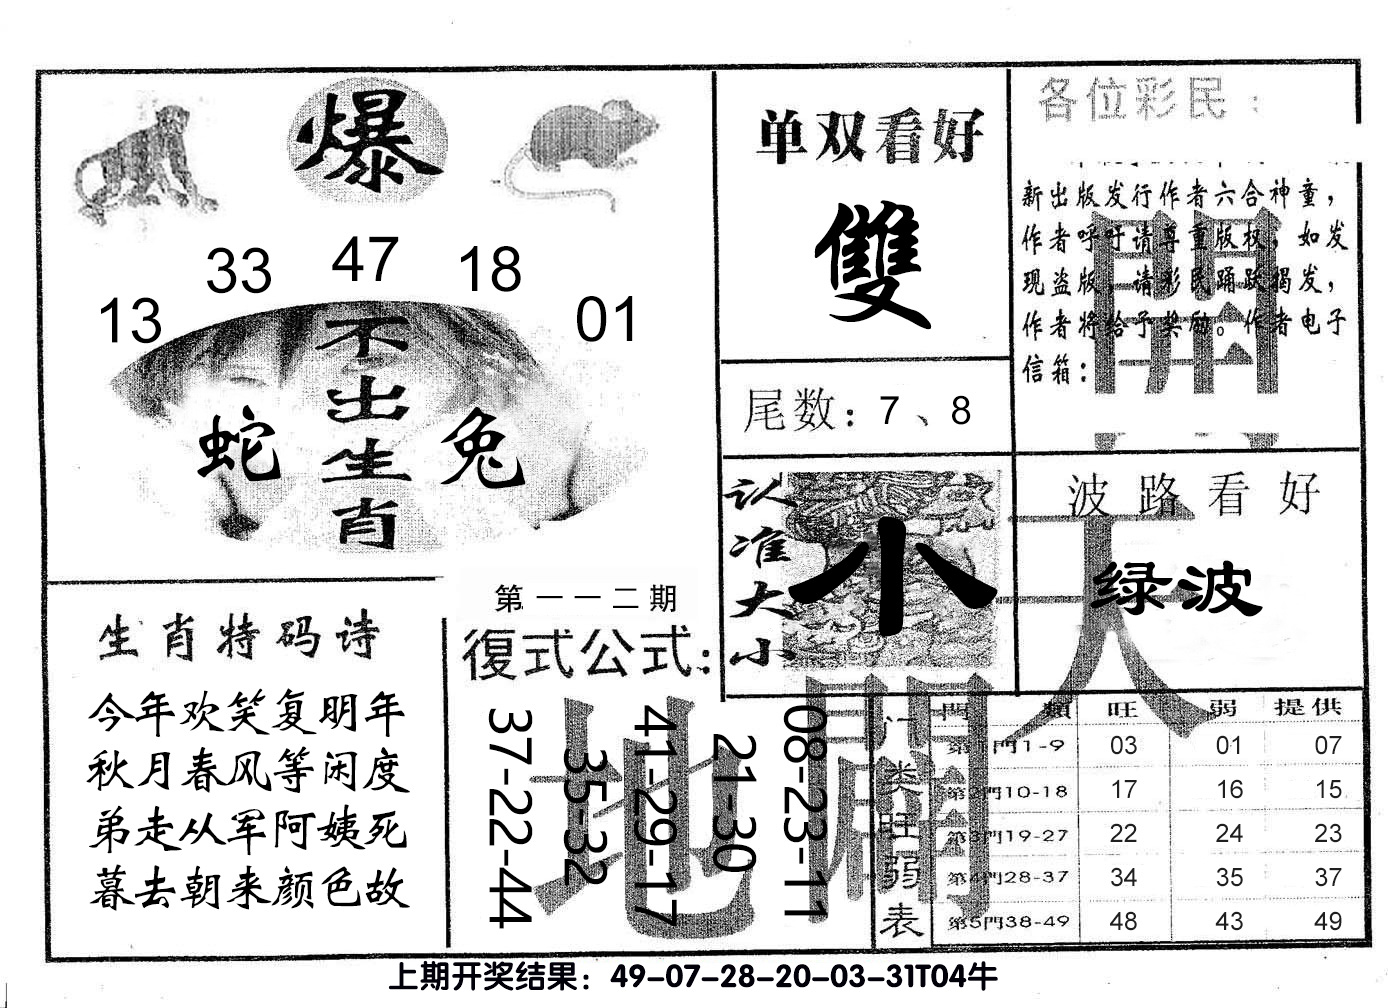 爆
33 47 18
13 01
不出生肖
蛇 兔
生肖特码诗
今年欢笑复明年
秋月春风等闲度
弟走从军阿姨死
暮去朝来颜色故
第一一二期
復式公式：
37-22-44
35-32
41-29-17
21-30
08-23-11
单双看好
雙
尾数：7、8
认准大小
小
各位彩民：
新出版发行作者六合神童，
作者呼吁请尊重版权，如发
现盗版，请彩民踊跃揭发，
作者将给予奖励。作者电子
信箱：
波路看好
绿波
天
地
開
门类旺弱表
門類 旺 弱 提供
第1門1-9 03 01 07
第2門10-18 17 16 15
第3門19-27 22 24 23
第4門28-37 34 35 37
第5門38-49 48 43 49
上期开奖结果：49-07-28-20-03-31T04牛